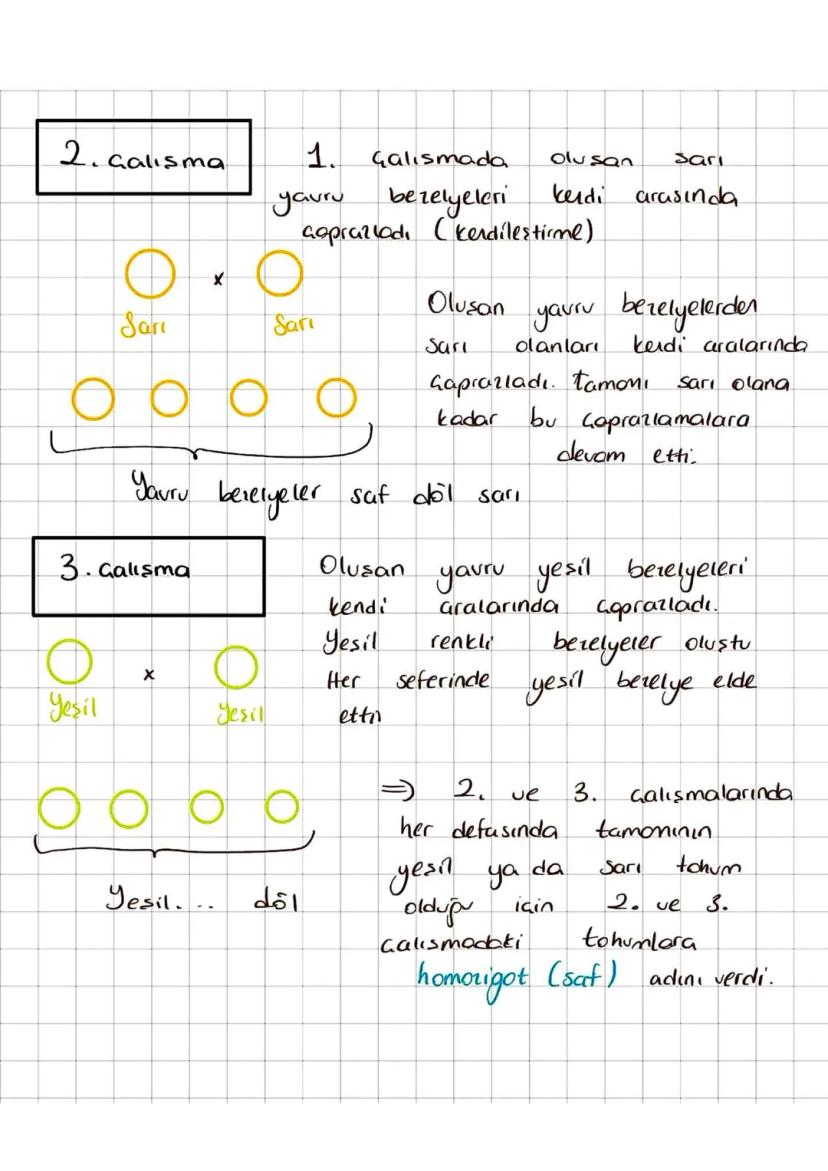 2. Çalışma
1. Çalışmada oluşan sarı
yavru bezelyeleri kendi arasında
çaprazladı (kendileştirme)
x
Sarı Sarı
Oluşan yavru bezelyelerden
sarı olanları kendi aralarında
çaprazladı. tamamı sarı olana
kadar bu çaprazlamalara
devam etti.
Yavru bezelyeler saf döl sarı
3. Çalışma
Oluşan yavru yeşil bezelyeleri
kendi aralarında çaprazladı.
Yeşil renkli bezelyeler oluştu
Her seferinde yeşil bezelye elde
etti
x
Yeşil Yeşil
Yeşil... döl
=> 2. ve 3. çalışmalarında
her defasında tamamının
yeşil ya da sarı tohum
olduğu için 2. ve 3.
çalışmadaki tohumlara
homozigot (saf) adını verdi.